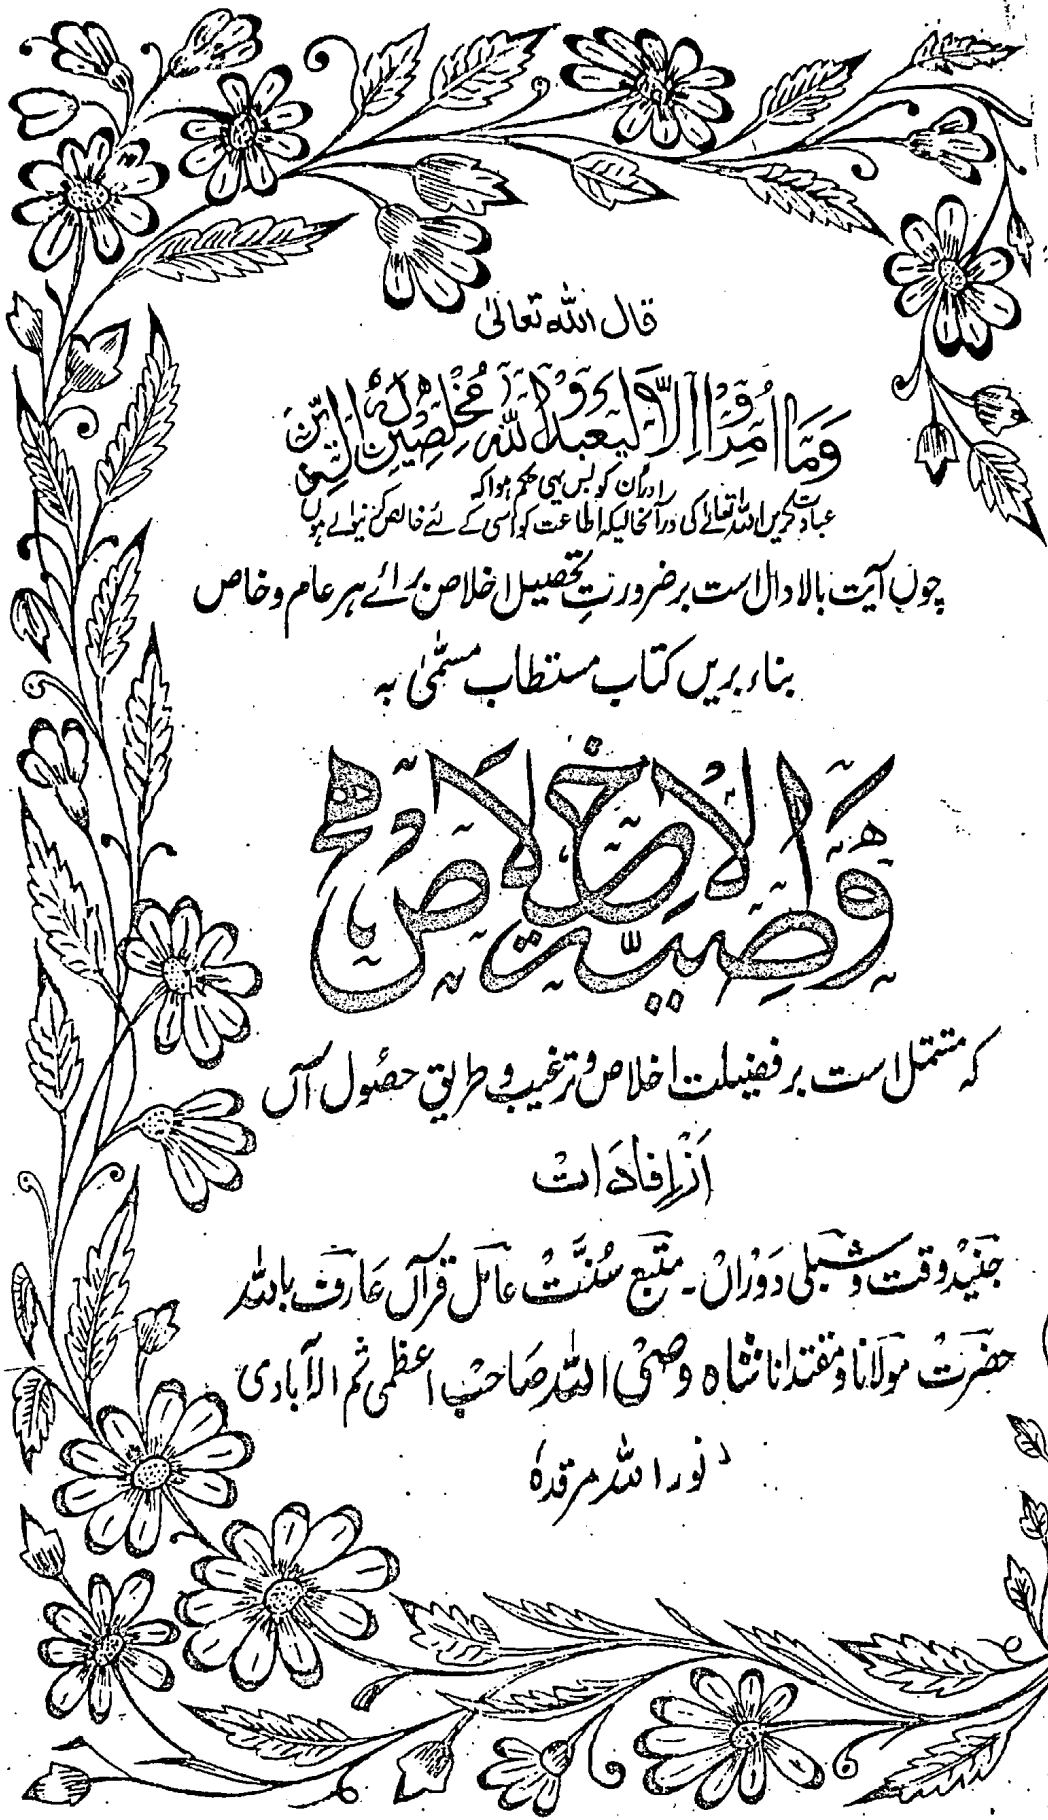 قال اللہ تعالیٰ
وَمَا اُمِرُوْا اِلَّا لِیَعْبُدُوا اللہَ مُخْلِصِیْنَ لَہُ الدِّیْنَ
اور ان کو بس یہی حکم ہوا کہ
عبادت کریں اللہ تعالےٰ کی درآنحالیکہ اطاعت کو اسی کے لئے خالص کرنیوالے ہوں
چوں آیت بالا دال است بر ضرورتِ تحصیل اخلاص برائے ہر عام و خاص
بناء بریں کتاب مستطاب مسمّٰی بہ
وَصِیَّۃُ الاِخلَاص
کہ مشتمل است بر فضیلت اخلاص و ترغیب و طریق حصُول آں
اَز اِفادَات
جنیدِ وقت و شبلی دَوراں۔ متبع سُنَّت عامل قرآں عَارف باللہ
حضرَتْ مولانا و مقتدانا شاہ وصی اللہ صَاحبْ اعظمی ثم الٰہ آبادی
نور اللہ مرقدہٗ